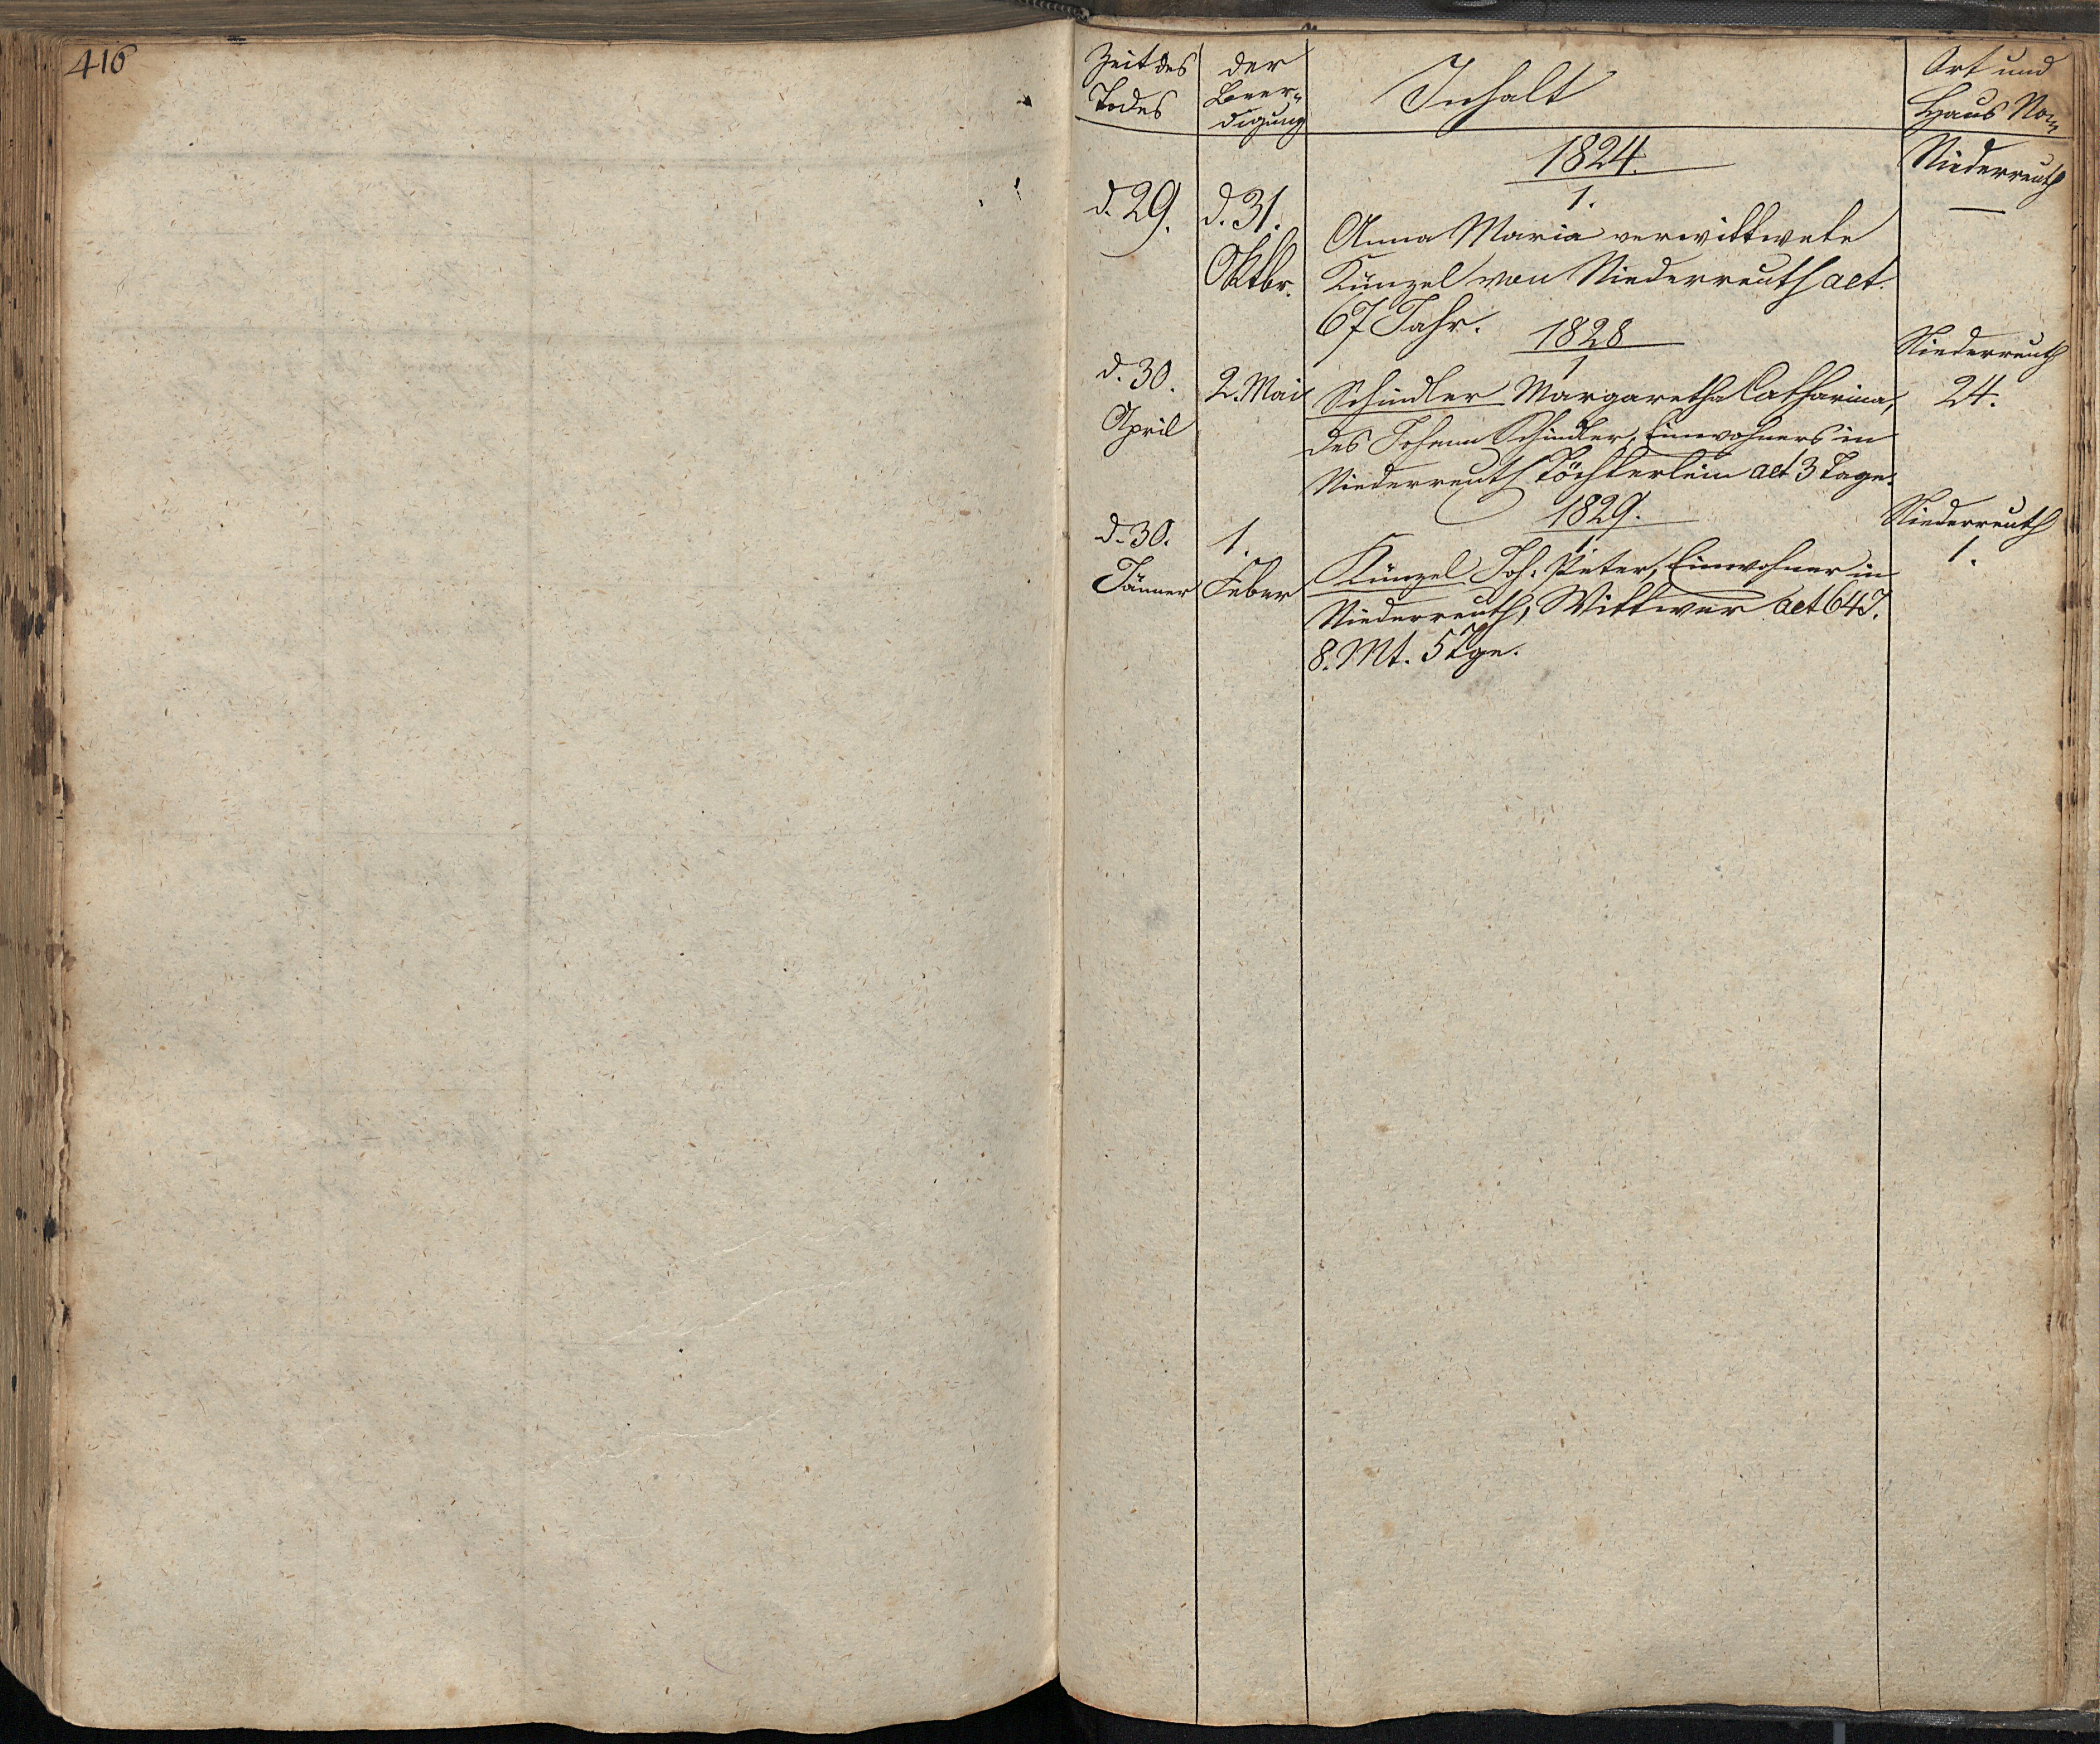 416
Zeit des
Todes
der
Beer-
digung
Inhalt
Ort und
Haus No
1824.
Niederreuth
—
1.
d. 29.
d. 31.
Oktbr.
Anna Maria verwittwete
Künzel von Niederreuth aet.
67 Jahr.
1828
Niederreuth
24.
1
d. 30.
April
2. Mai
Schindler Margaretha Catharina,
des Johann Schindler, Einwohners in
Niederreuth Töchterlein aet 3 Tage.
1829.
Niederreuth
1.
1.
d. 30.
Jänner
1.
Feber
Künzel Joh: Peter, Einwohner in
Niederreuth, Wittwer aet 64 J.
8. Mt. 5 Tge.